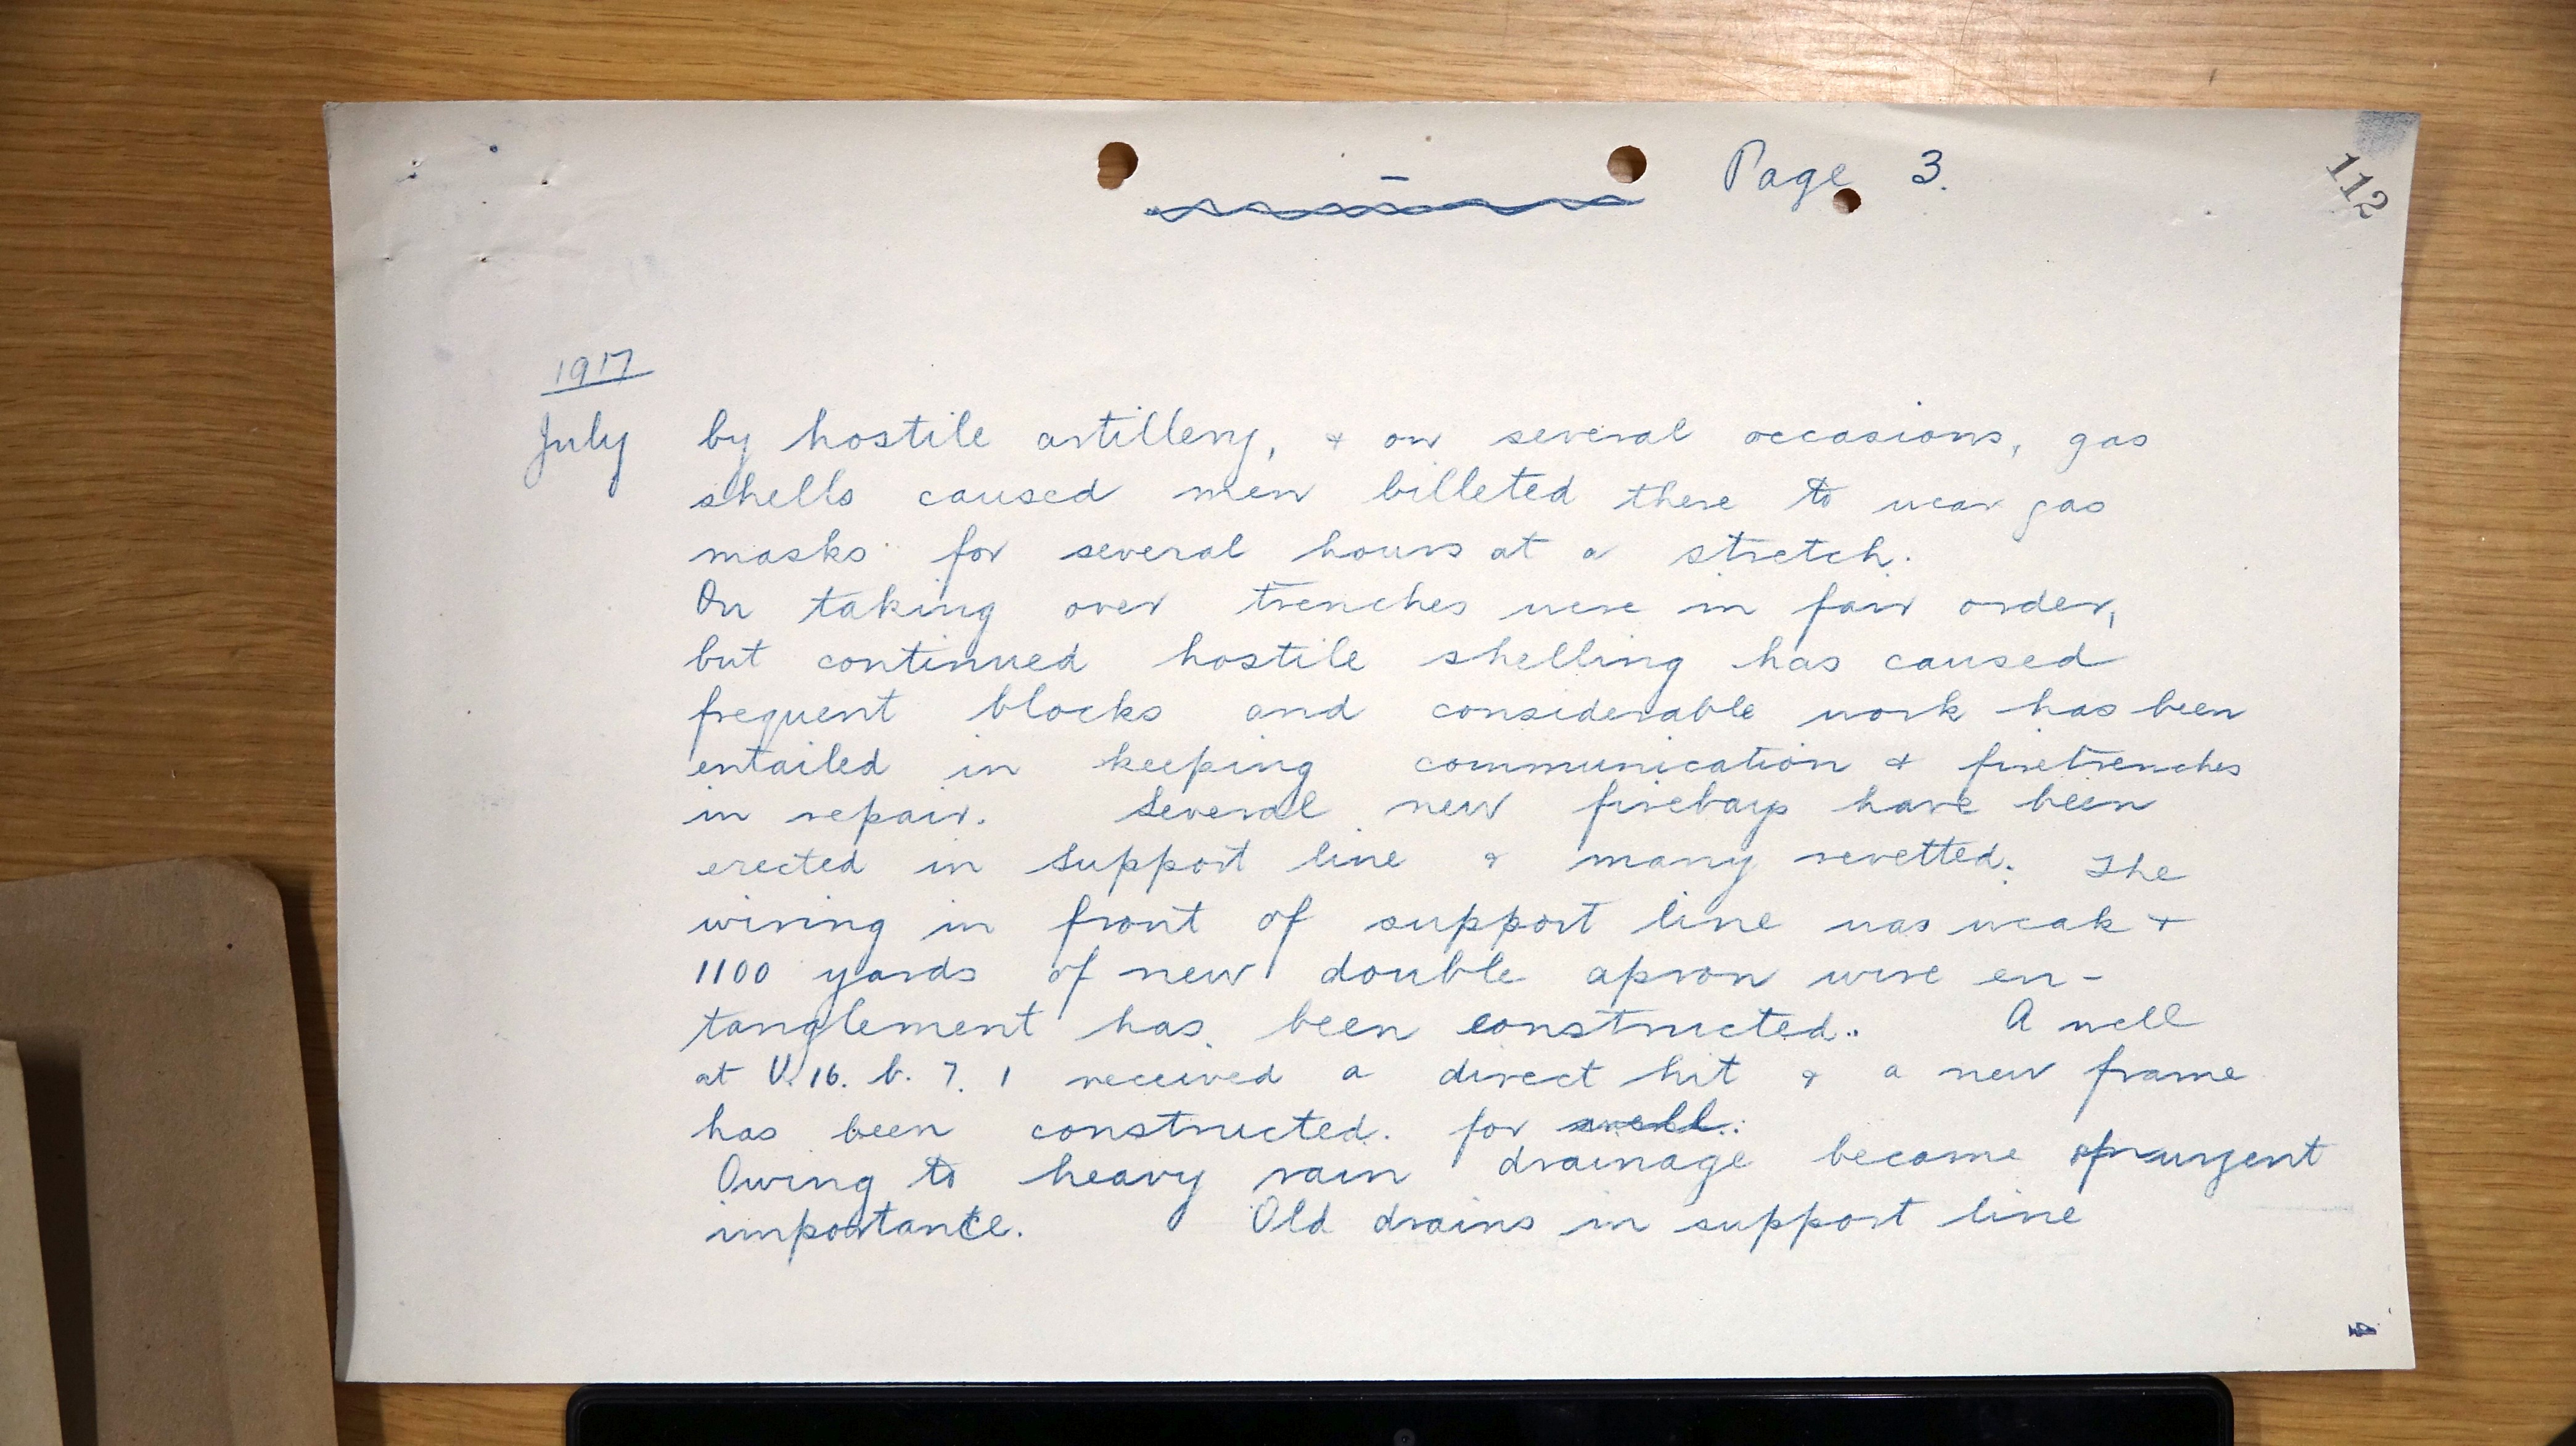 Page 3.
112
1917
July by hostile artillery, & on several occasions, gas
shells caused men billeted there to wear gas
masks for several hours at a stretch.
On taking over trenches were in fair order,
but continued hostile shelling has caused
frequent blocks and considerable work has been
entailed in keeping communication & firetrenches
in repair. Several new firebays have been
erected in support line & many revetted. The
wiring in front of support line was weak &
1100 yards of new double apron wire en-
tanglement has been constructed. A well
at U.16. b. 7. 1 received a direct hit & a new frame
has been constructed. for well.
Owing to heavy rain drainage became of urgent
importance. Old drains in support line